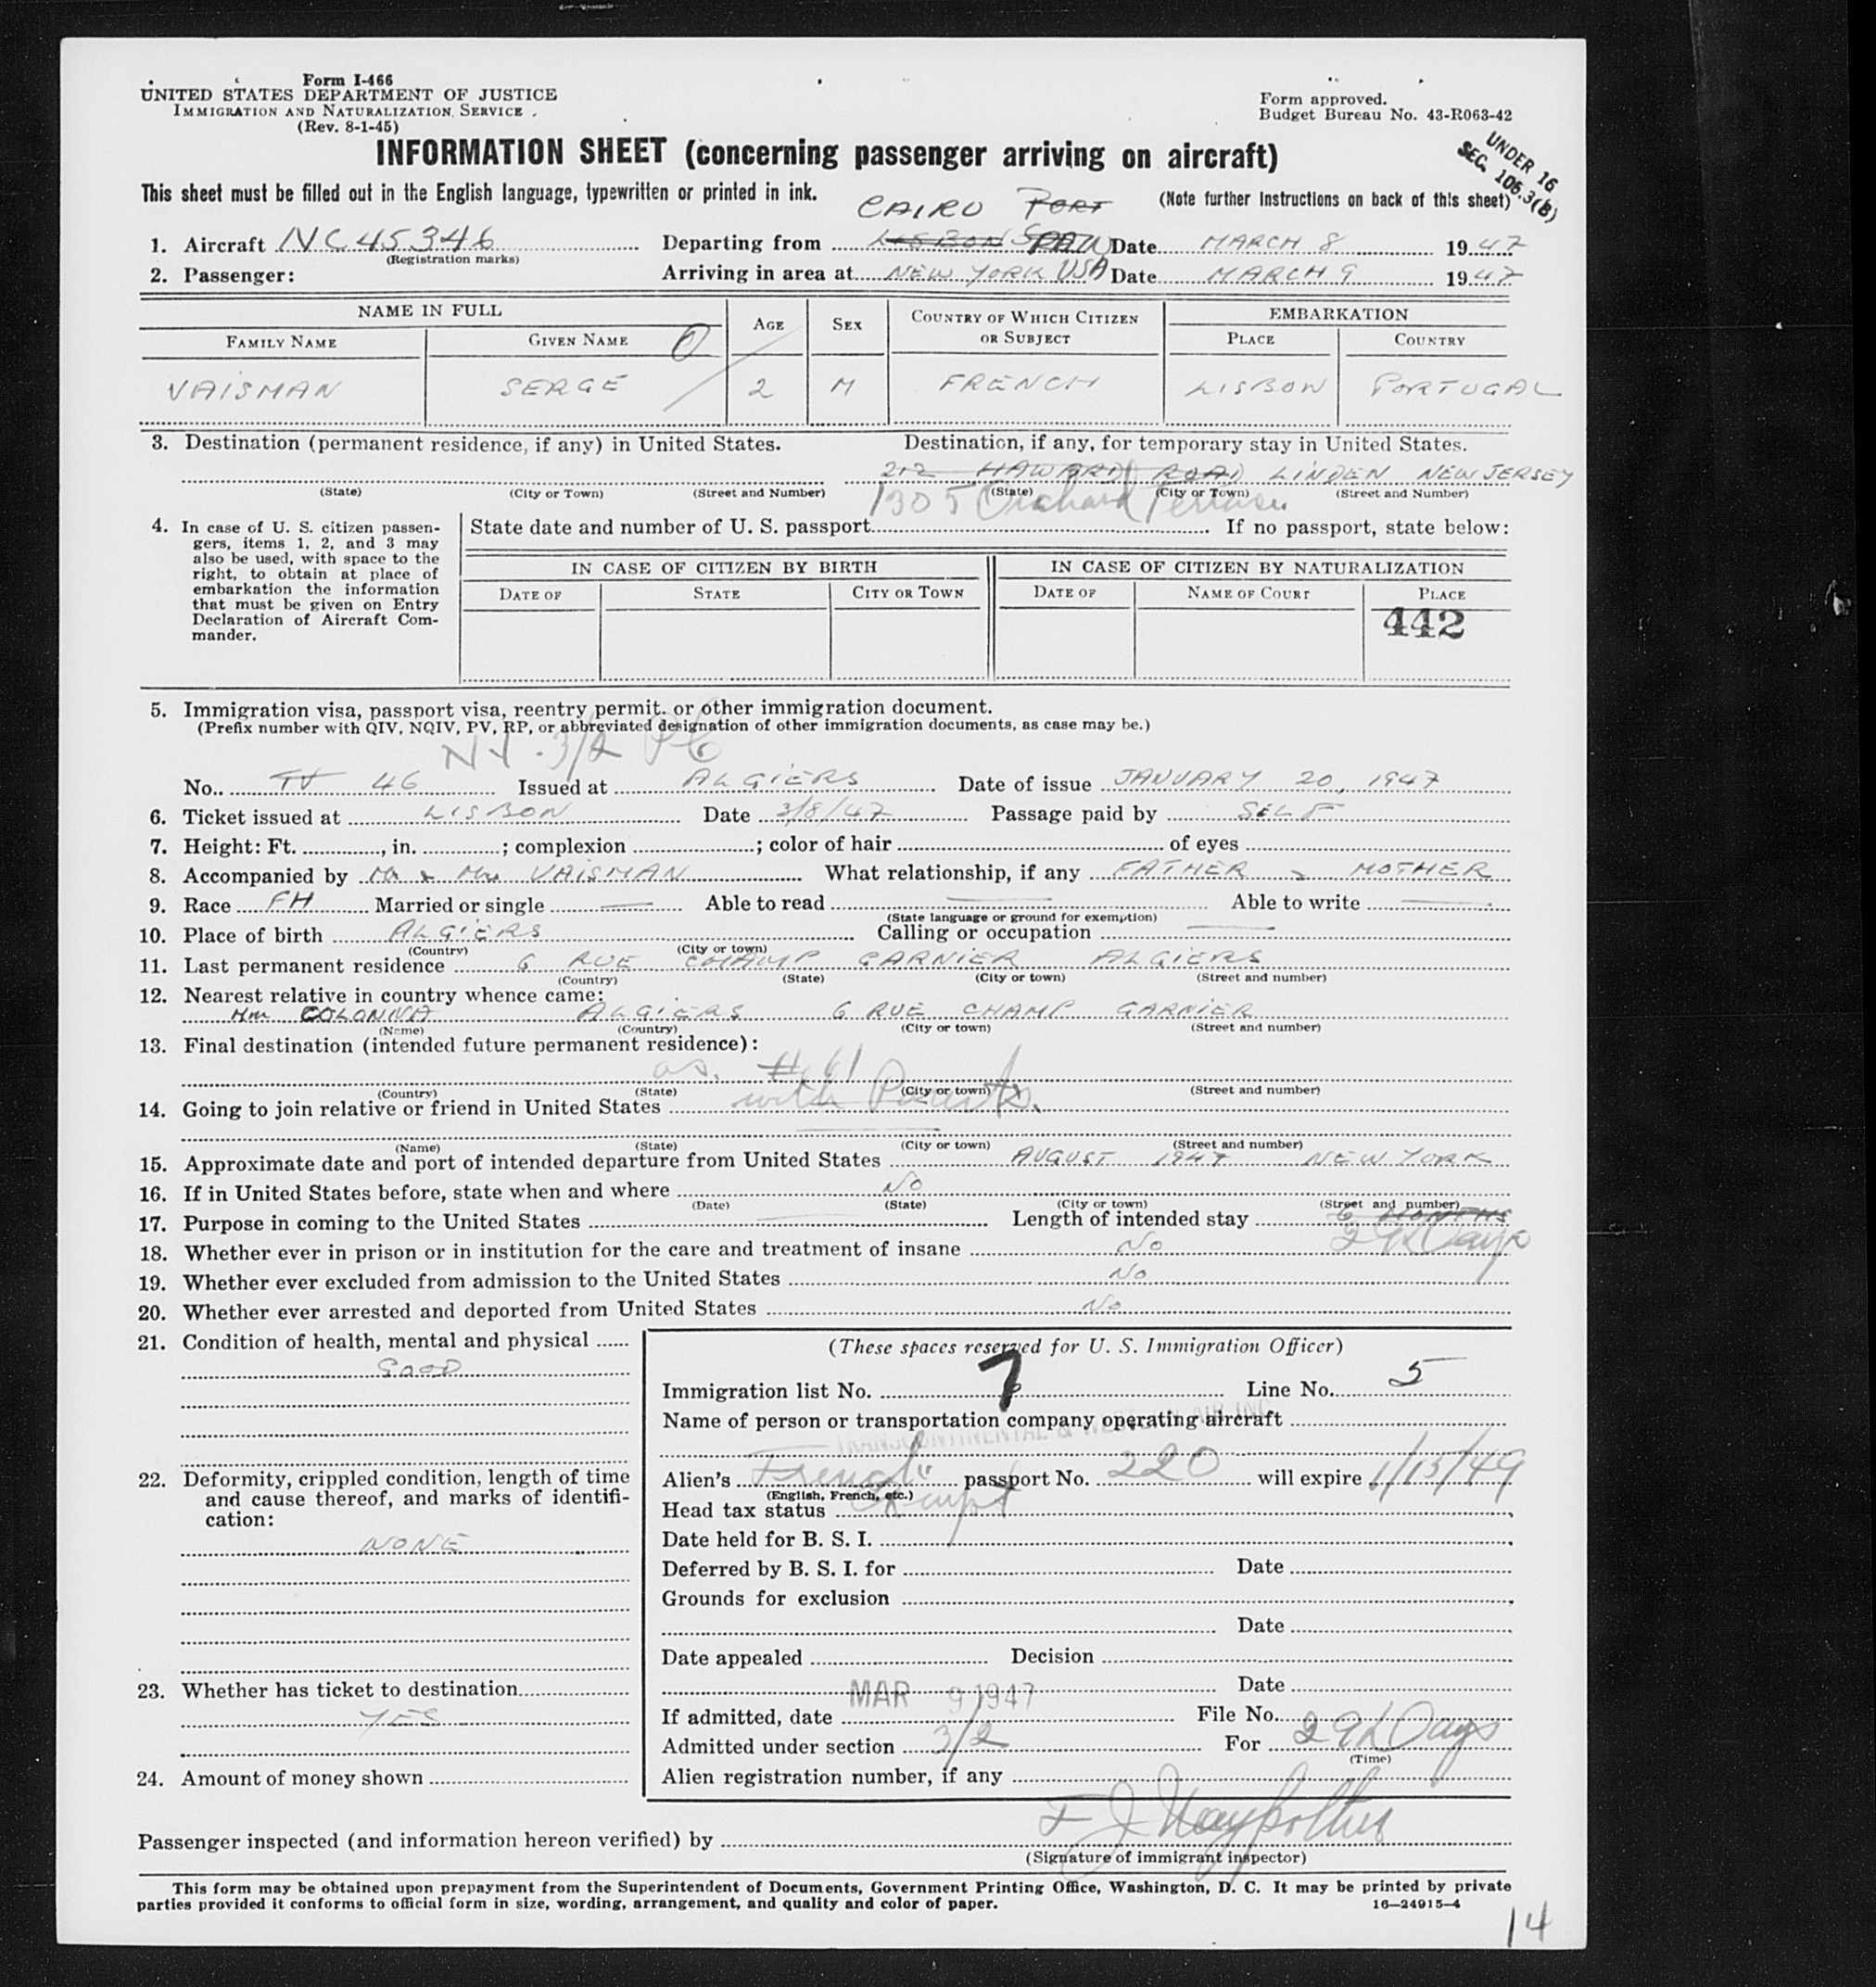 Form I-466
UNITED STATES DEPARTMENT OF JUSTICE
IMMIGRATION AND NATURALIZATION SERVICE
(Rev. 8-1-45)
Form approved.
Budget Bureau No. 43-R063-42
UNDER 16
SEC. 106.3(B)
INFORMATION SHEET (concerning passenger arriving on aircraft)
This sheet must be filled out in the English language, typewritten or printed in ink.
(Note further instructions on back of this sheet)
CAIRO PORT
1. Aircraft NC45346 Departing from LISBON SPAIN Date MARCH 8 1947
(Registration marks)
2. Passenger: Arriving in area at NEW YORK USA Date MARCH 9 1947
NAME IN FULL AGE SEX COUNTRY OF WHICH CITIZEN OR SUBJECT EMBARKATION
FAMILY NAME GIVEN NAME PLACE COUNTRY
VAISMAN SERGE 2 M FRENCH LISBON PORTUGAL
3. Destination (permanent residence, if any) in United States. Destination, if any, for temporary stay in United States.
212 HAWARD ROAD LINDEN NEW JERSEY
(State) (City or Town) (Street and Number) (State) (City or Town) (Street and Number)
1305 Orchard Terrace
4. In case of U. S. citizen passen-
gers, items 1, 2, and 3 may
also be used, with space to the
right, to obtain at place of
embarkation the information
that must be given on Entry
Declaration of Aircraft Com-
mander.
State date and number of U. S. passport If no passport, state below:
IN CASE OF CITIZEN BY BIRTH IN CASE OF CITIZEN BY NATURALIZATION
DATE OF STATE CITY OR TOWN DATE OF NAME OF COURT PLACE
442
5. Immigration visa, passport visa, reentry permit, or other immigration document.
(Prefix number with QIV, NQIV, PV, RP, or abbreviated designation of other immigration documents, as case may be.)
3/2
No. TV 46 Issued at ALGIERS Date of issue JANUARY 20, 1947
6. Ticket issued at LISBON Date 3/8/47 Passage paid by SELF
7. Height: Ft. , in. ; complexion ; color of hair of eyes
8. Accompanied by Mr & Mrs VAISMAN What relationship, if any FATHER & MOTHER
9. Race FH Married or single Able to read Able to write
(State language or ground for exemption)
10. Place of birth ALGIERS Calling or occupation
(Country) (City or town)
11. Last permanent residence 6 RUE CHAMP GARNIER ALGIERS
(Country) (State) (City or town) (Street and number)
12. Nearest relative in country whence came:
Mm COLONNA ALGIERS 6 RUE CHAMP GARNIER
(Name) (Country) (City or town) (Street and number)
13. Final destination (intended future permanent residence):
as. # 11
(Country) (State) (City or town) (Street and number)
14. Going to join relative or friend in United States with Parents.
(Name) (State) (City or town) (Street and number)
15. Approximate date and port of intended departure from United States AUGUST 1947 NEW YORK
16. If in United States before, state when and where NO
(Date) (State) (City or town) (Street and number)
17. Purpose in coming to the United States Length of intended stay 6 MONTHS
29 Days
18. Whether ever in prison or in institution for the care and treatment of insane No
19. Whether ever excluded from admission to the United States No
20. Whether ever arrested and deported from United States No
21. Condition of health, mental and physical
GOOD
22. Deformity, crippled condition, length of time
and cause thereof, and marks of identifi-
cation:
NONE
23. Whether has ticket to destination
YES
24. Amount of money shown
(These spaces reserved for U. S. Immigration Officer)
Immigration list No. 7 Line No. 5
Name of person or transportation company operating aircraft
TRANSCONTINENTAL & WESTERN AIR INC
Alien's French passport No. 220 will expire 1/13/49
(English, French, etc.)
Head tax status Exempt
Date held for B. S. I.
Deferred by B. S. I. for Date
Grounds for exclusion
Date
Date appealed Decision
Date
If admitted, date MAR 9 1947 File No.
Admitted under section 3/2 For 29 Days
(Time)
Alien registration number, if any
Passenger inspected (and information hereon verified) by
(Signature of immigrant inspector)
This form may be obtained upon prepayment from the Superintendent of Documents, Government Printing Office, Washington, D. C. It may be printed by private
parties provided it conforms to official form in size, wording, arrangement, and quality and color of paper.
16—24915-4
14